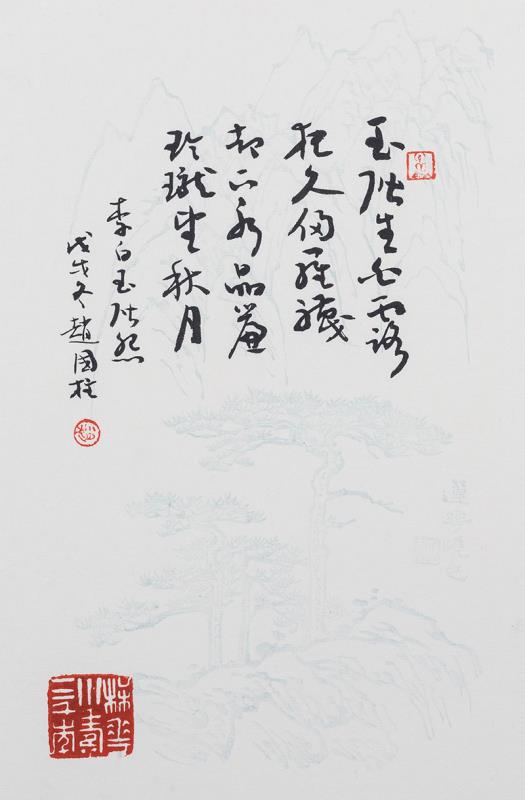 玉階生白露
夜久侵羅襪
却下水晶簾
玲瓏望秋月
李白玉階怨
戊戌冬趙國柱